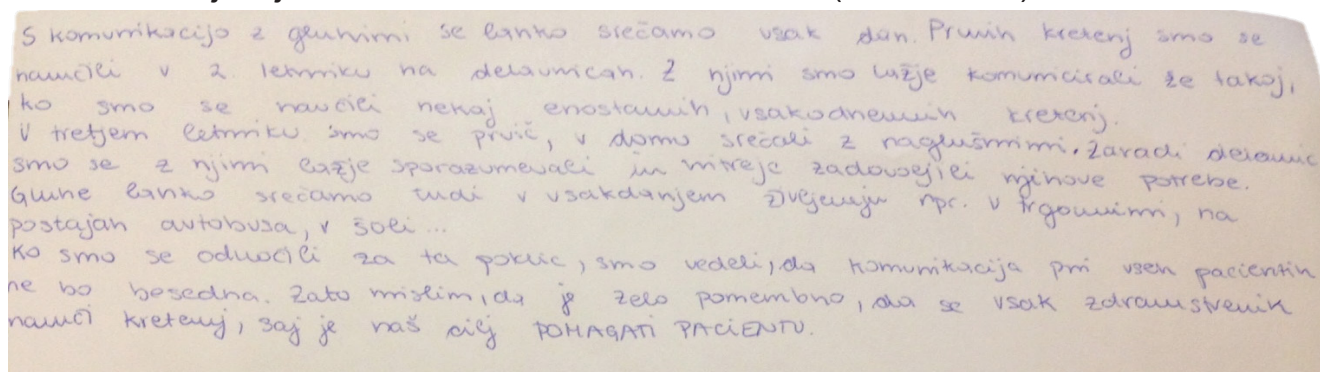 S komunikacijo z gluhimi se lahko srečamo vsak dan. Prvih kretenj smo se
naučili v 2. letniku na delavnicah. Z njimi smo lažje komunicirali že takoj,
ko smo se naučili nekaj enostavnih, vsakodnevnih kretenj.
V tretjem letniku smo se prvič, v domu srečali z naglušnimi. Zaradi delavnic
smo se z njimi lažje sporazumevali in hitreje zadovoljili njihove potrebe.
Gluhe lahko srečamo tudi v vsakdanjem življenju npr. v trgovini, na
postajah avtobusa, v šoli ...
Ko smo se odločili za ta poklic, smo vedeli, da komunikacija pri vseh pacientih
ne bo besedna. Zato mislim, da je zelo pomembno, da se vsak zdravstvenik
nauči kretenj, saj je naš cilj POMAGATI PACIENTU.